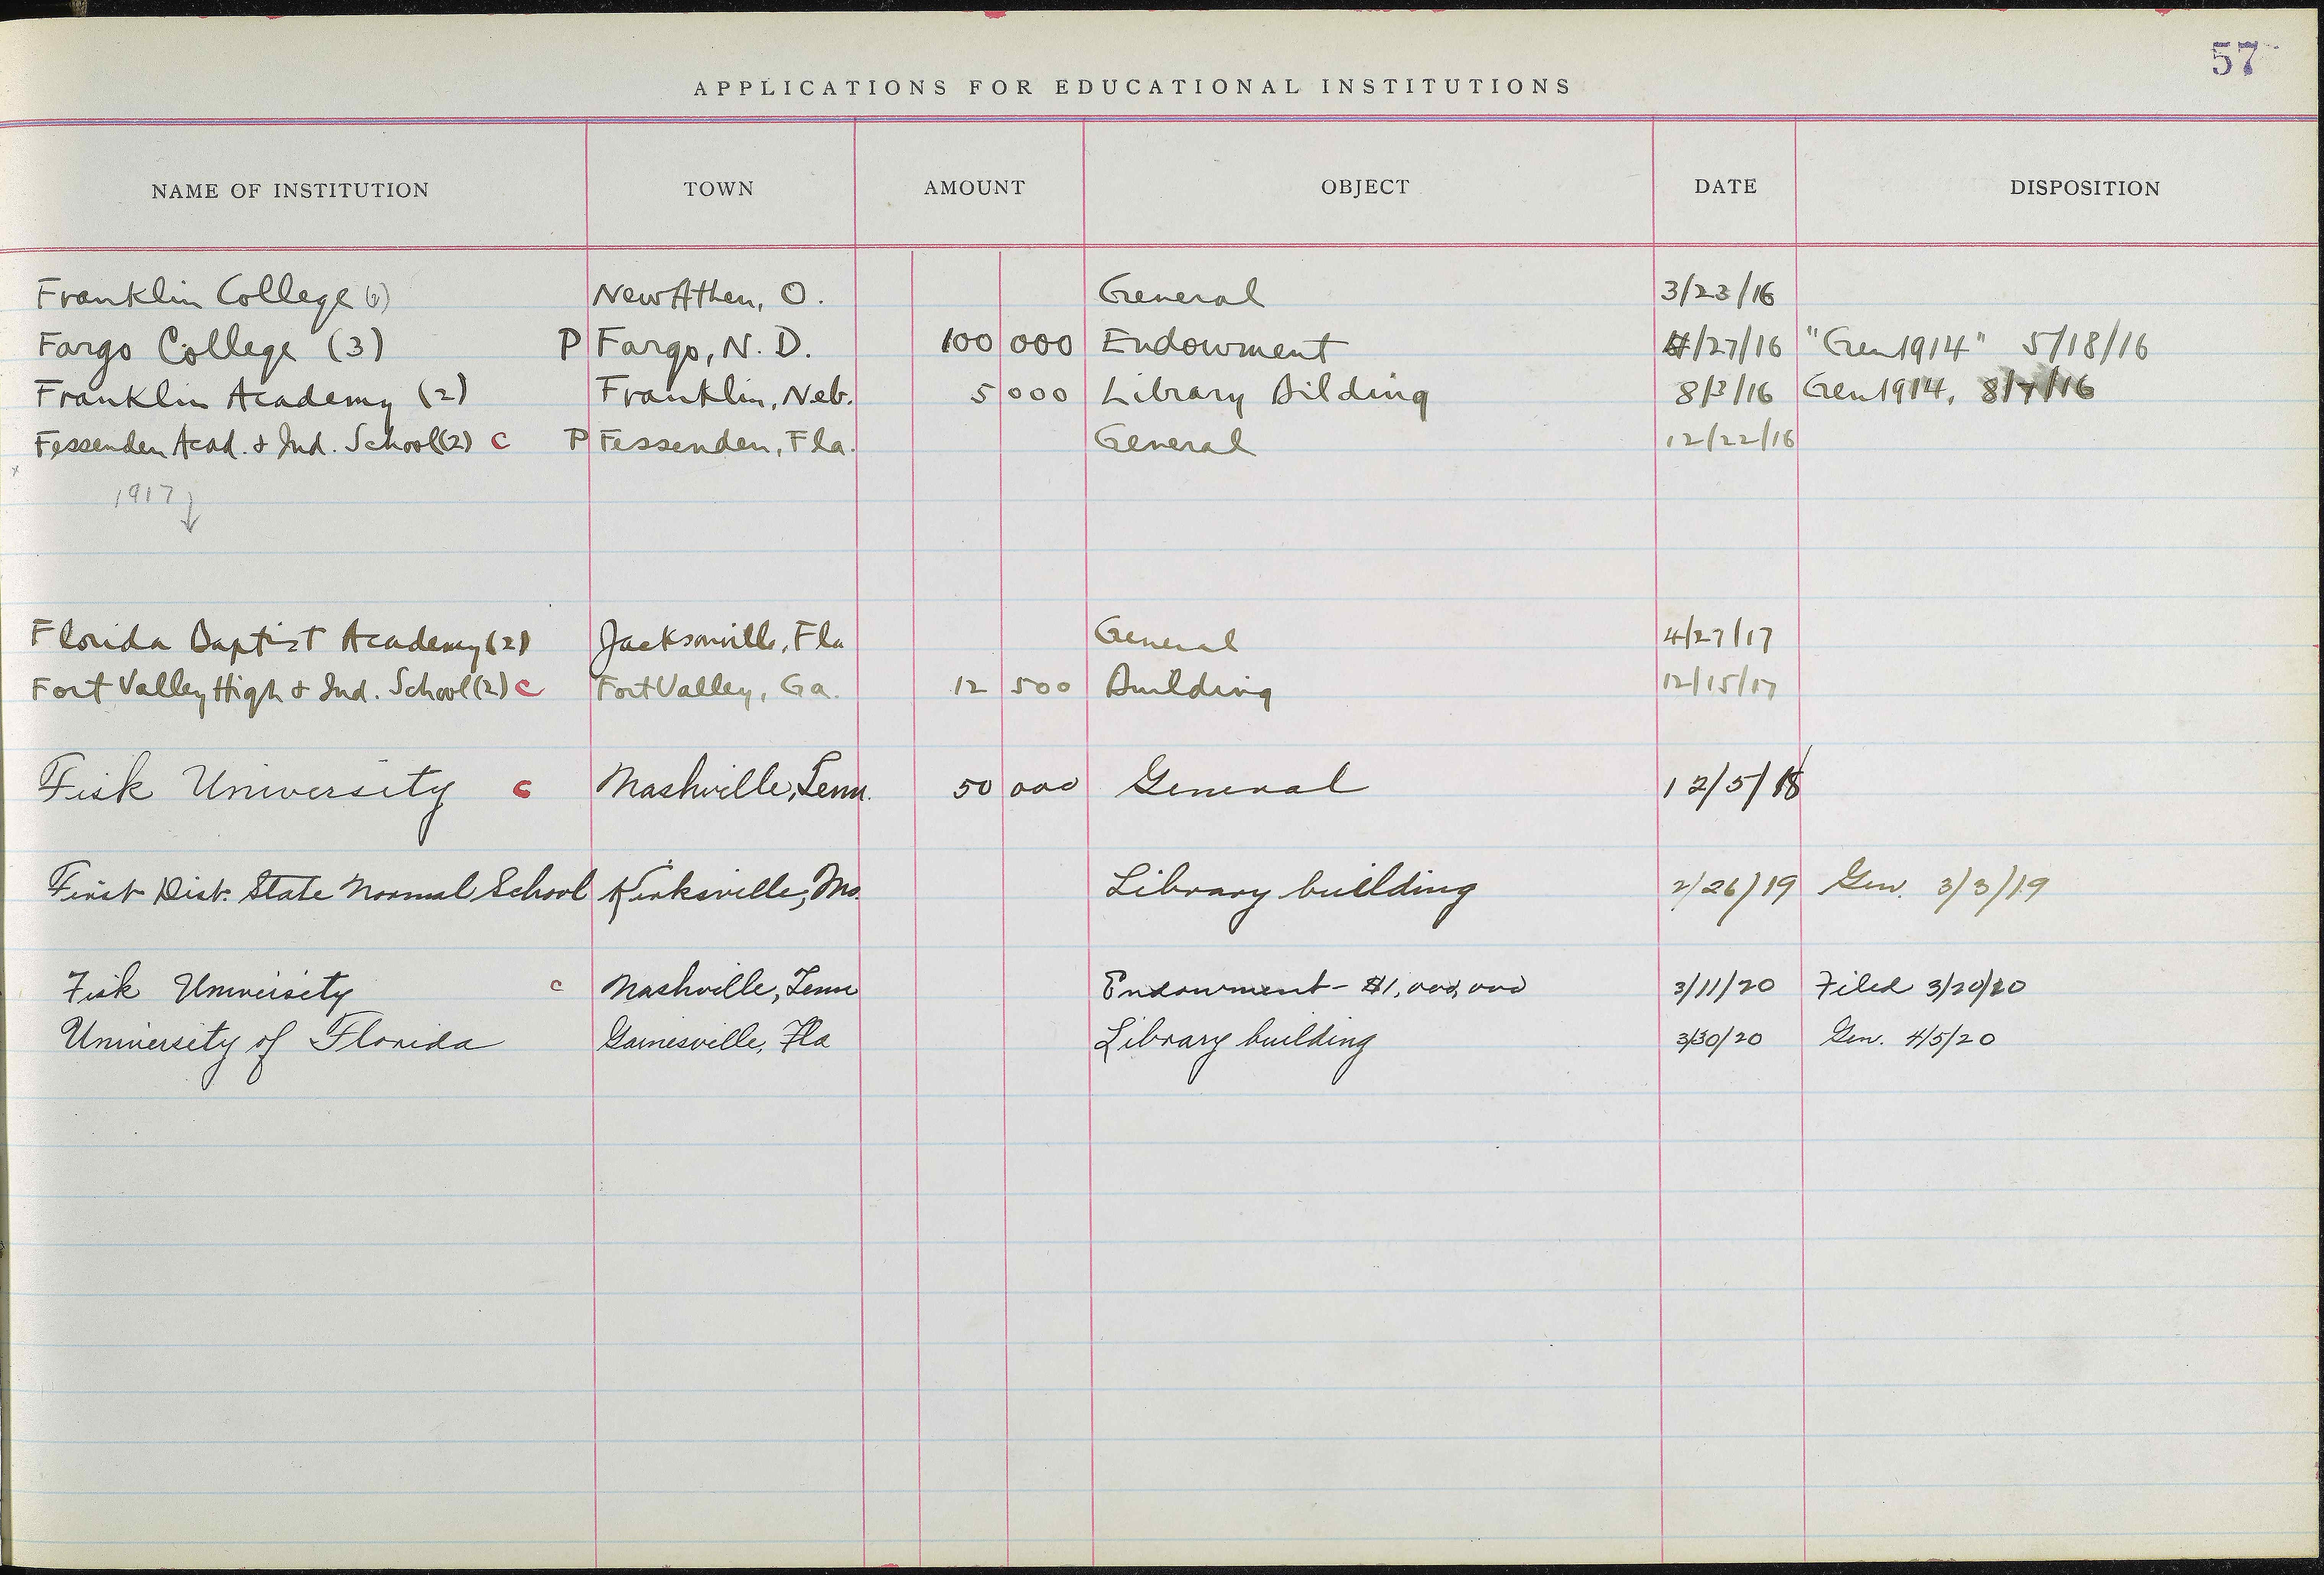 57
APPLICATIONS FOR EDUCATIONAL INSTITUTIONS
NAME OF INSTITUTION TOWN AMOUNT OBJECT DATE DISPOSITION
Franklin College New Athen, O. General 3/23/16
Fargo College (3) P Fargo, N. D. 100 000 Endowment 4/27/16 "Gen 1914" 5/18/16
Franklin Academy (2) Franklin, Neb. 5 000 Library Bilding 8/3/16 Gen 1914, 8/7/16
Fessenden Acad. & Ind. School (2) C P Fessenden, Fla. General 12/22/16
1917
Florida Baptist Academy (2) Jacksonville, Fla General 4/27/17
Fort Valley High & Ind. School (2) C Fort Valley, Ga. 12 500 Building 12/15/17
Fisk University C Nashville, Tenn. 50 000 General 12/5/18
First Dist. State Normal School Kirksville, Mo. Library building 2/26/19 Gen. 3/3/19
Fisk University C Nashville, Tenn Endowment - $1,000,000 3/11/20 Filed 3/20/20
University of Florida Gainesville, Fla Library building 3/30/20 Gen. 4/5/20